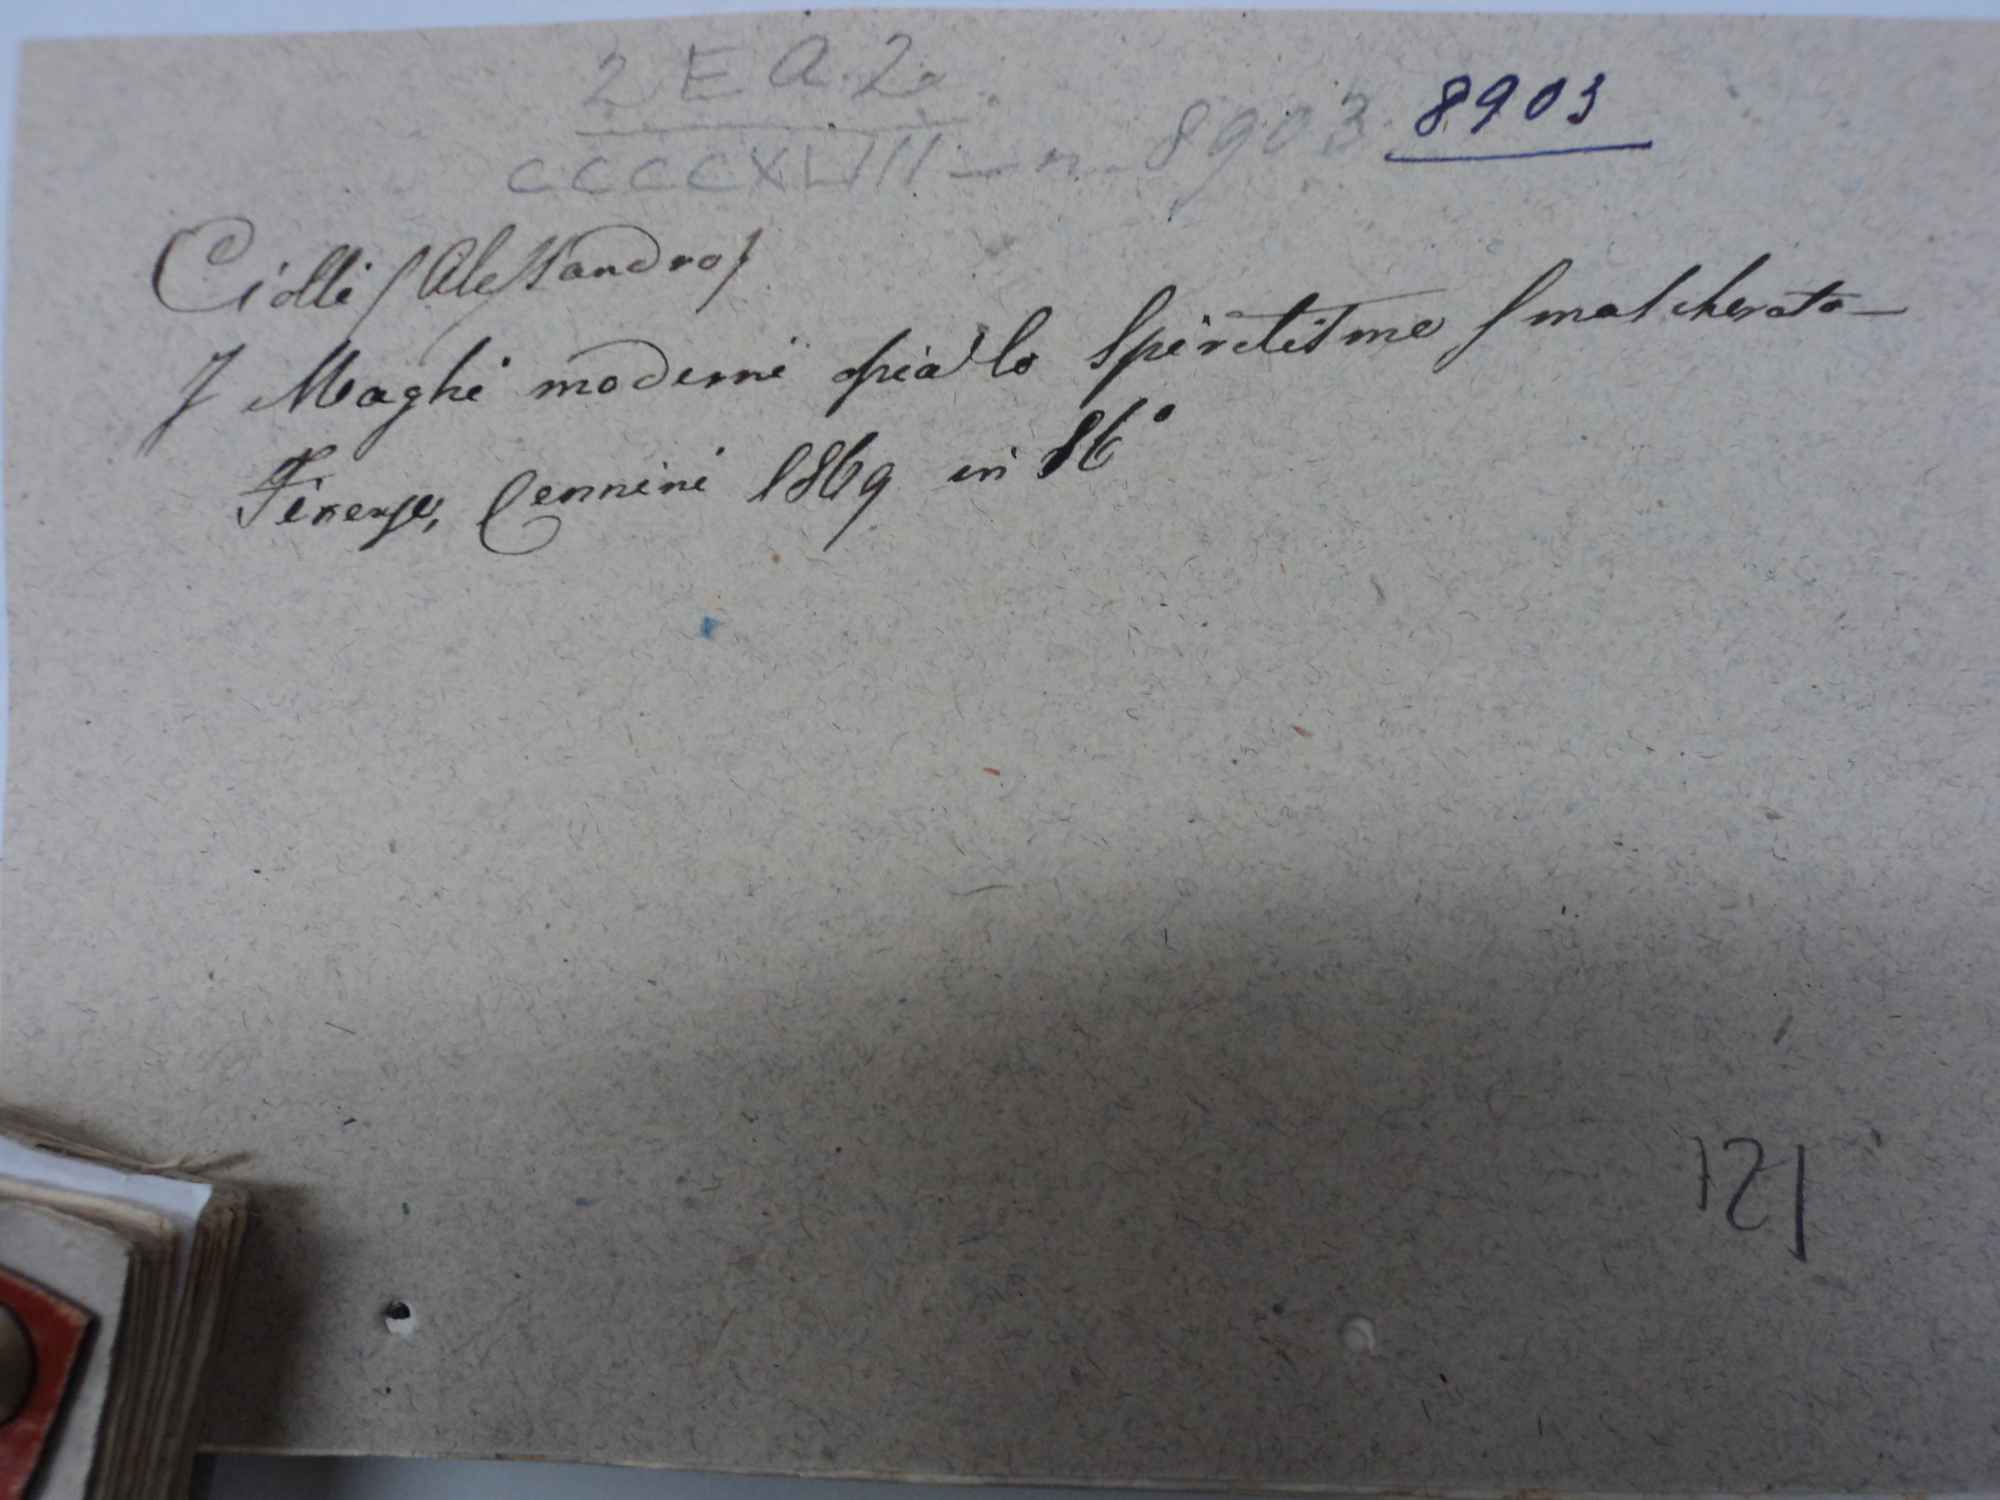 2 E A. 2.
CCCCXLVIII — n. 8903. 8903
Ciolli (Alessandro)
I Maghi moderni ossia lo Spiritismo smascherato —
Firenze, Cennini 1869 in 16°
121